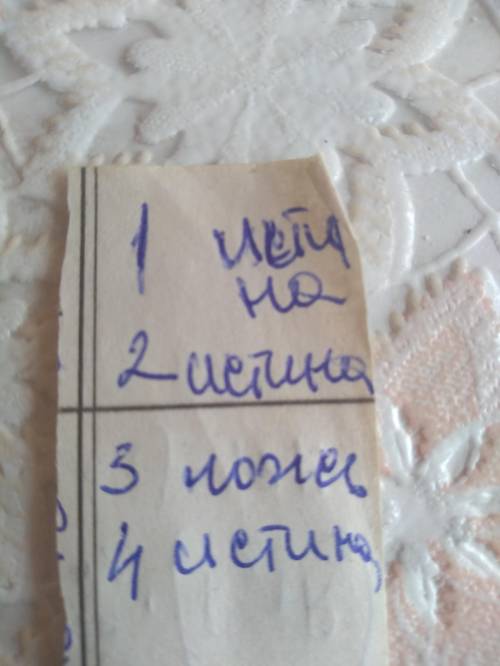 1 исти
на
2 истина
3 ложь
4 истина